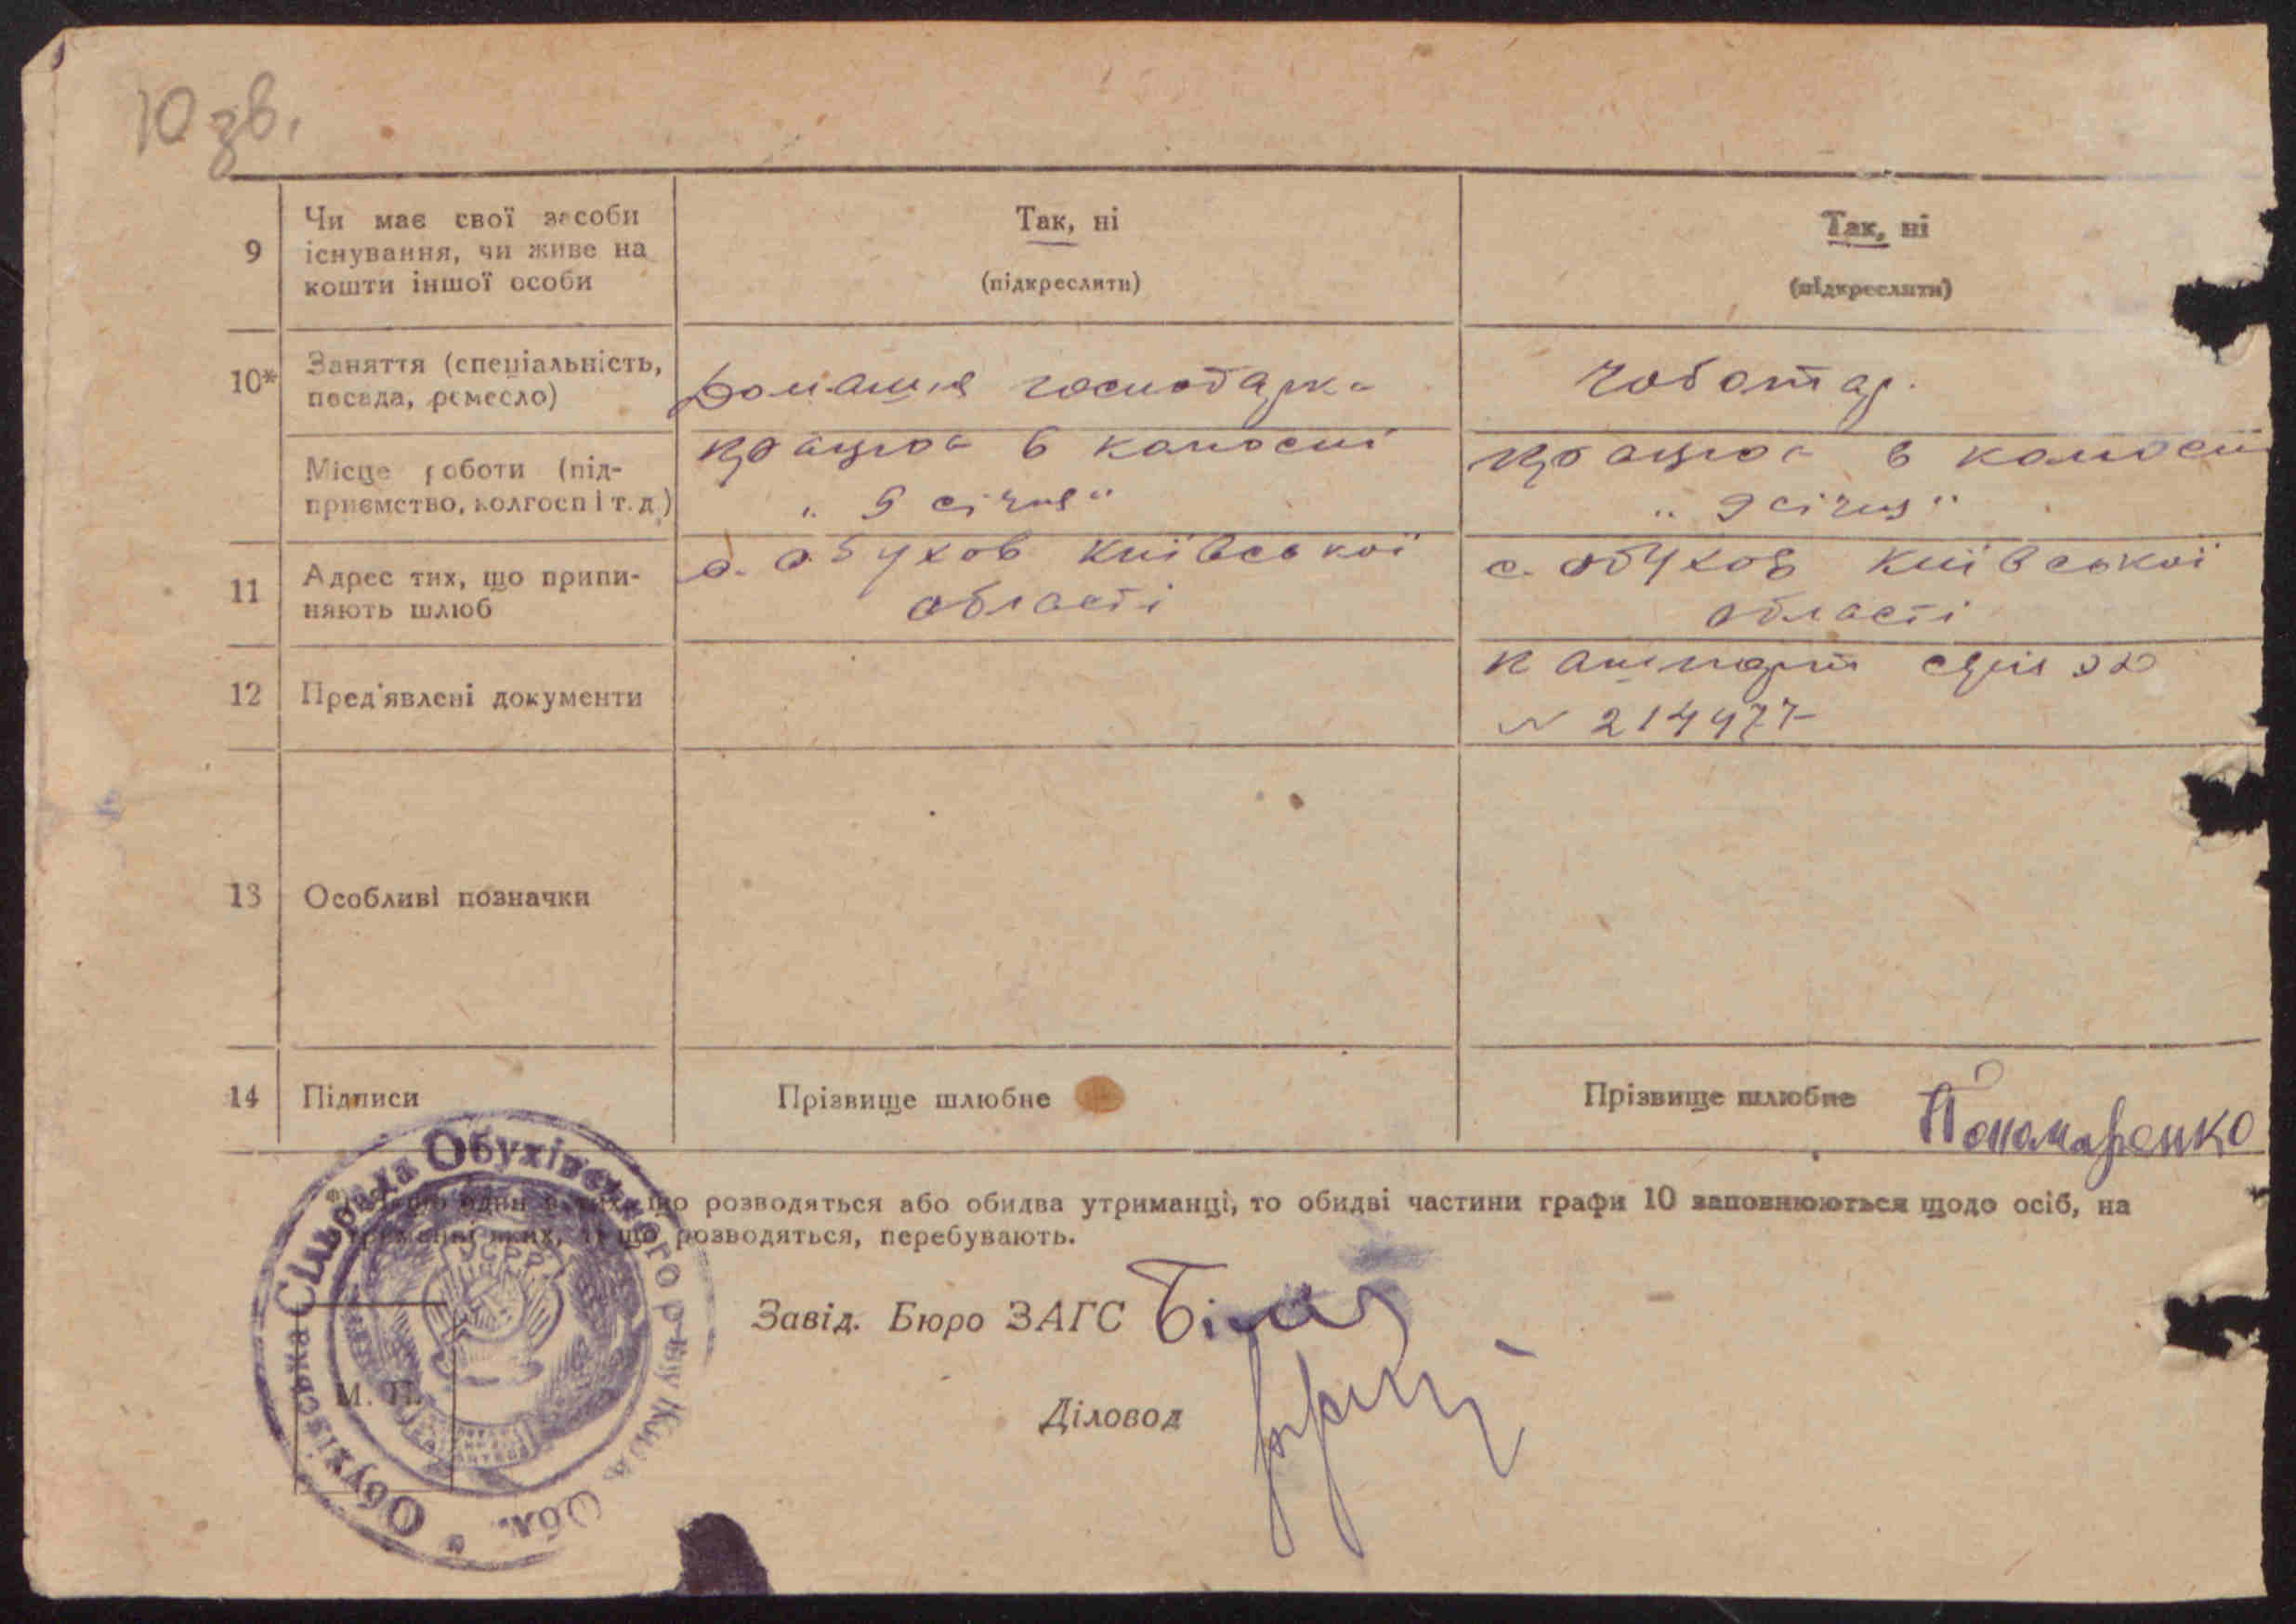 10 зв.
9
Чи має свої засоби
існування, чи живе на
кошти іншої особи
Так, ні
(підкреслити)
Так, ні
(підкреслити)
10*
Заняття (спеціальність,
посада, ремесло)
Домашня господарка
Чоботар.
Місце роботи (під-
приємство, колгосп і т. д.)
працює в колгоспі
"9 січня"
працює в колгоспі
"9 січня"
11
Адрес тих, що припи-
няють шлюб
с. Обухов Київської
області
с. Обухов Київської
області
12
Пред'явлені документи
пашпорт серія
N 214977
13
Особливі позначки
14
Підписи
Прізвище шлюбне
Прізвище шлюбне Пономаренко
*) Якщо один з тих, що розводяться або обидва утриманці, то обидві частини графи 10 заповнюються щодо осіб, на
утриманні яких, ті що розводяться, перебувають.
Завід. Бюро ЗАГС
Діловод
М. П.
Обухівська Сільрада Обухівського р-ну Київ. Обл.
УСРР